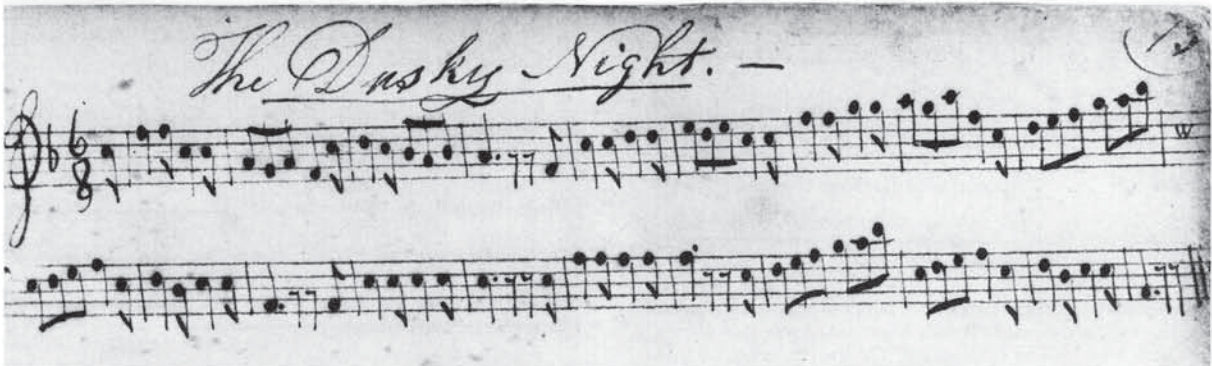 The Dusky Night. —
6
8